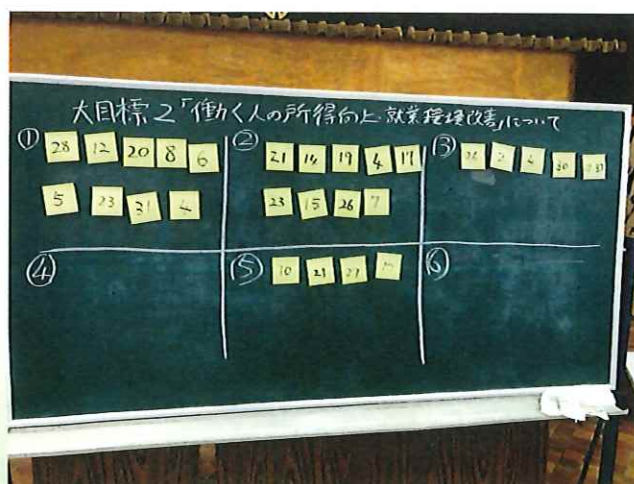 大目標2「働く人の所得向上・就業環境改善」について
① 28 12 20 8 6
5 23 31 4
② 21 14 19 4 17
23 15 26 7
③ 2
④
⑤ 10 27
⑥